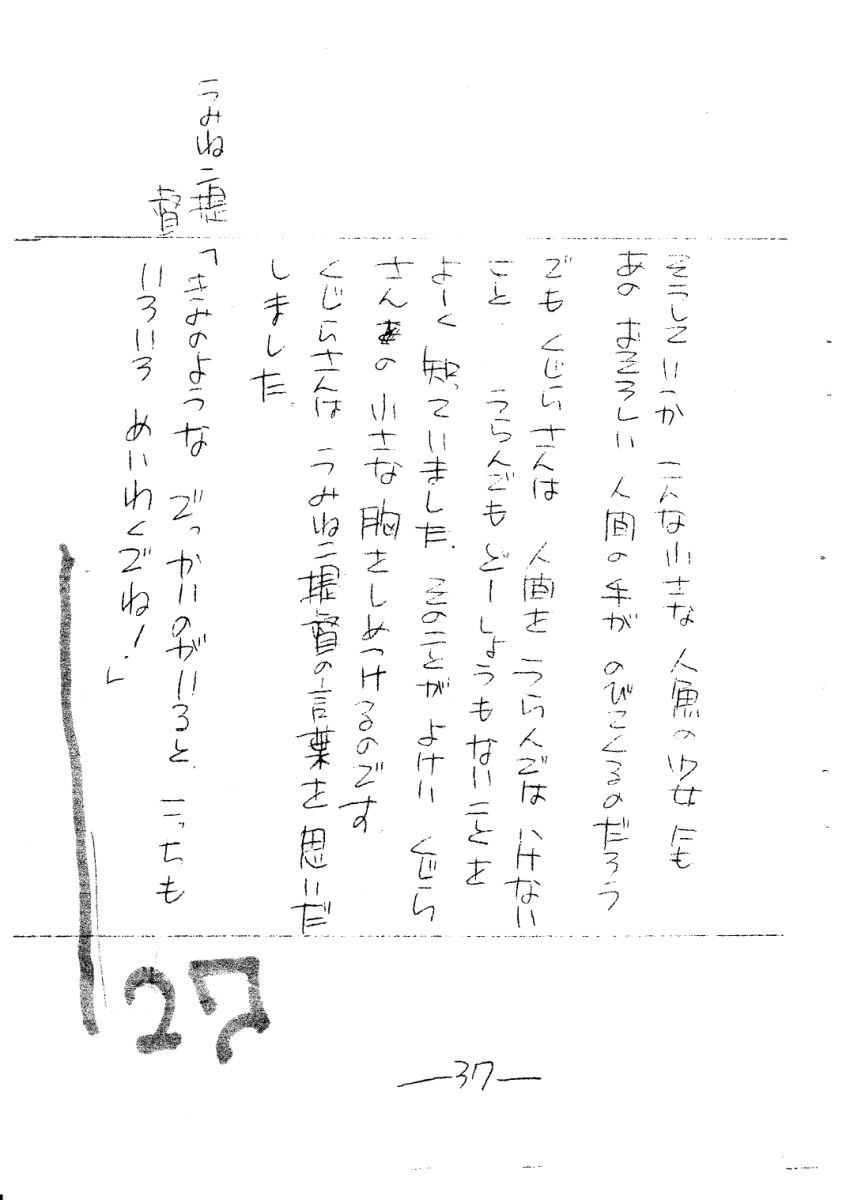 そうしていつか こんな小さな 人魚の少女にも
あの おそろしい 人間の手が のびてくるのだろう
でも くじらさんは 人間を うらんでは いけない
こと うらんでも どーしょうもないことを
よーく 知っていました. そのことが よけい くじら
さんの 小さな 胸をしめつけるのです
くじらさんは うみねこ提督の言葉を 思いだ
しました.
うみねこ提
督
「きみのような でっかいのがいると、こっちも
いろいろ めいわくでね!」
27
—37—